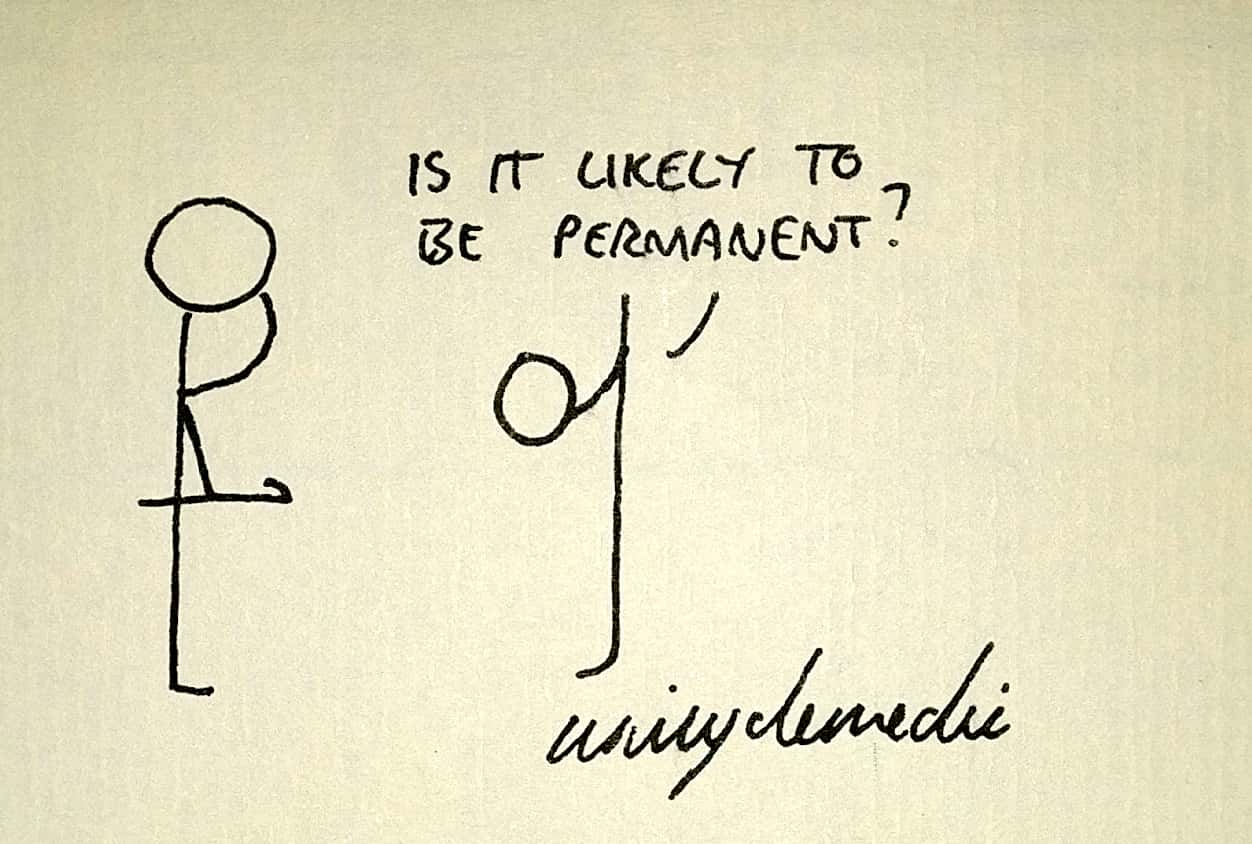 IS IT LIKELY TO
BE PERMANENT?
unicyclemedic